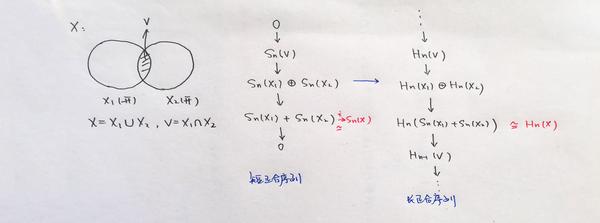 X:
V
X₁(开) X₂(开)
X=X₁∪X₂, V=X₁∩X₂
0
↓
Sn(V)
↓
Sn(X₁) ⊕ Sn(X₂)
↓
Sn(X₁) + Sn(X₂) →i≃ Sn(X)
↓
0
短正合序列
→
⋮
↓
Hn(V)
↓
Hn(X₁) ⊕ Hn(X₂)
↓
Hn(Sn(X₁)+Sn(X₂)) ≅ Hn(X)
↓
Hn-1(V)
↓
⋮
长正合序列